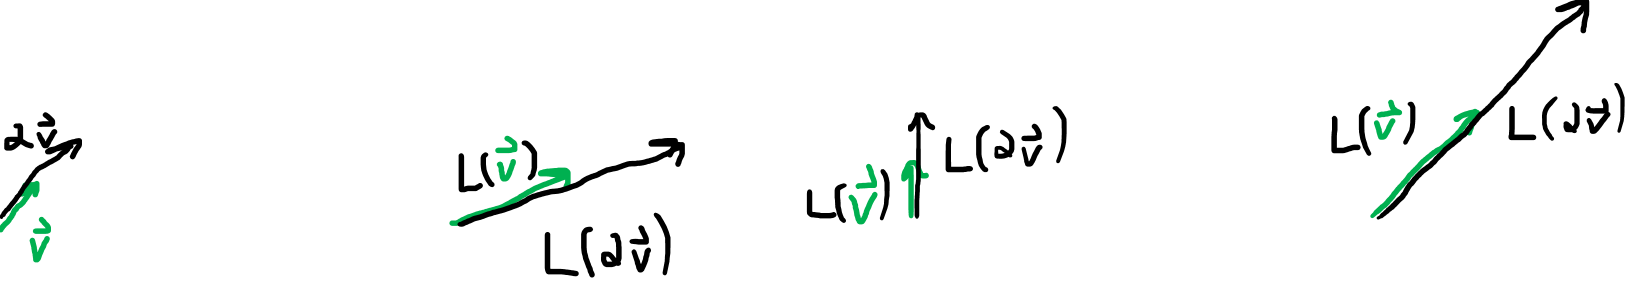 2v⃗
v⃗
L(v⃗)
L(2v⃗)
L(v⃗)
L(2v⃗)
L(v⃗)
L(2v⃗)